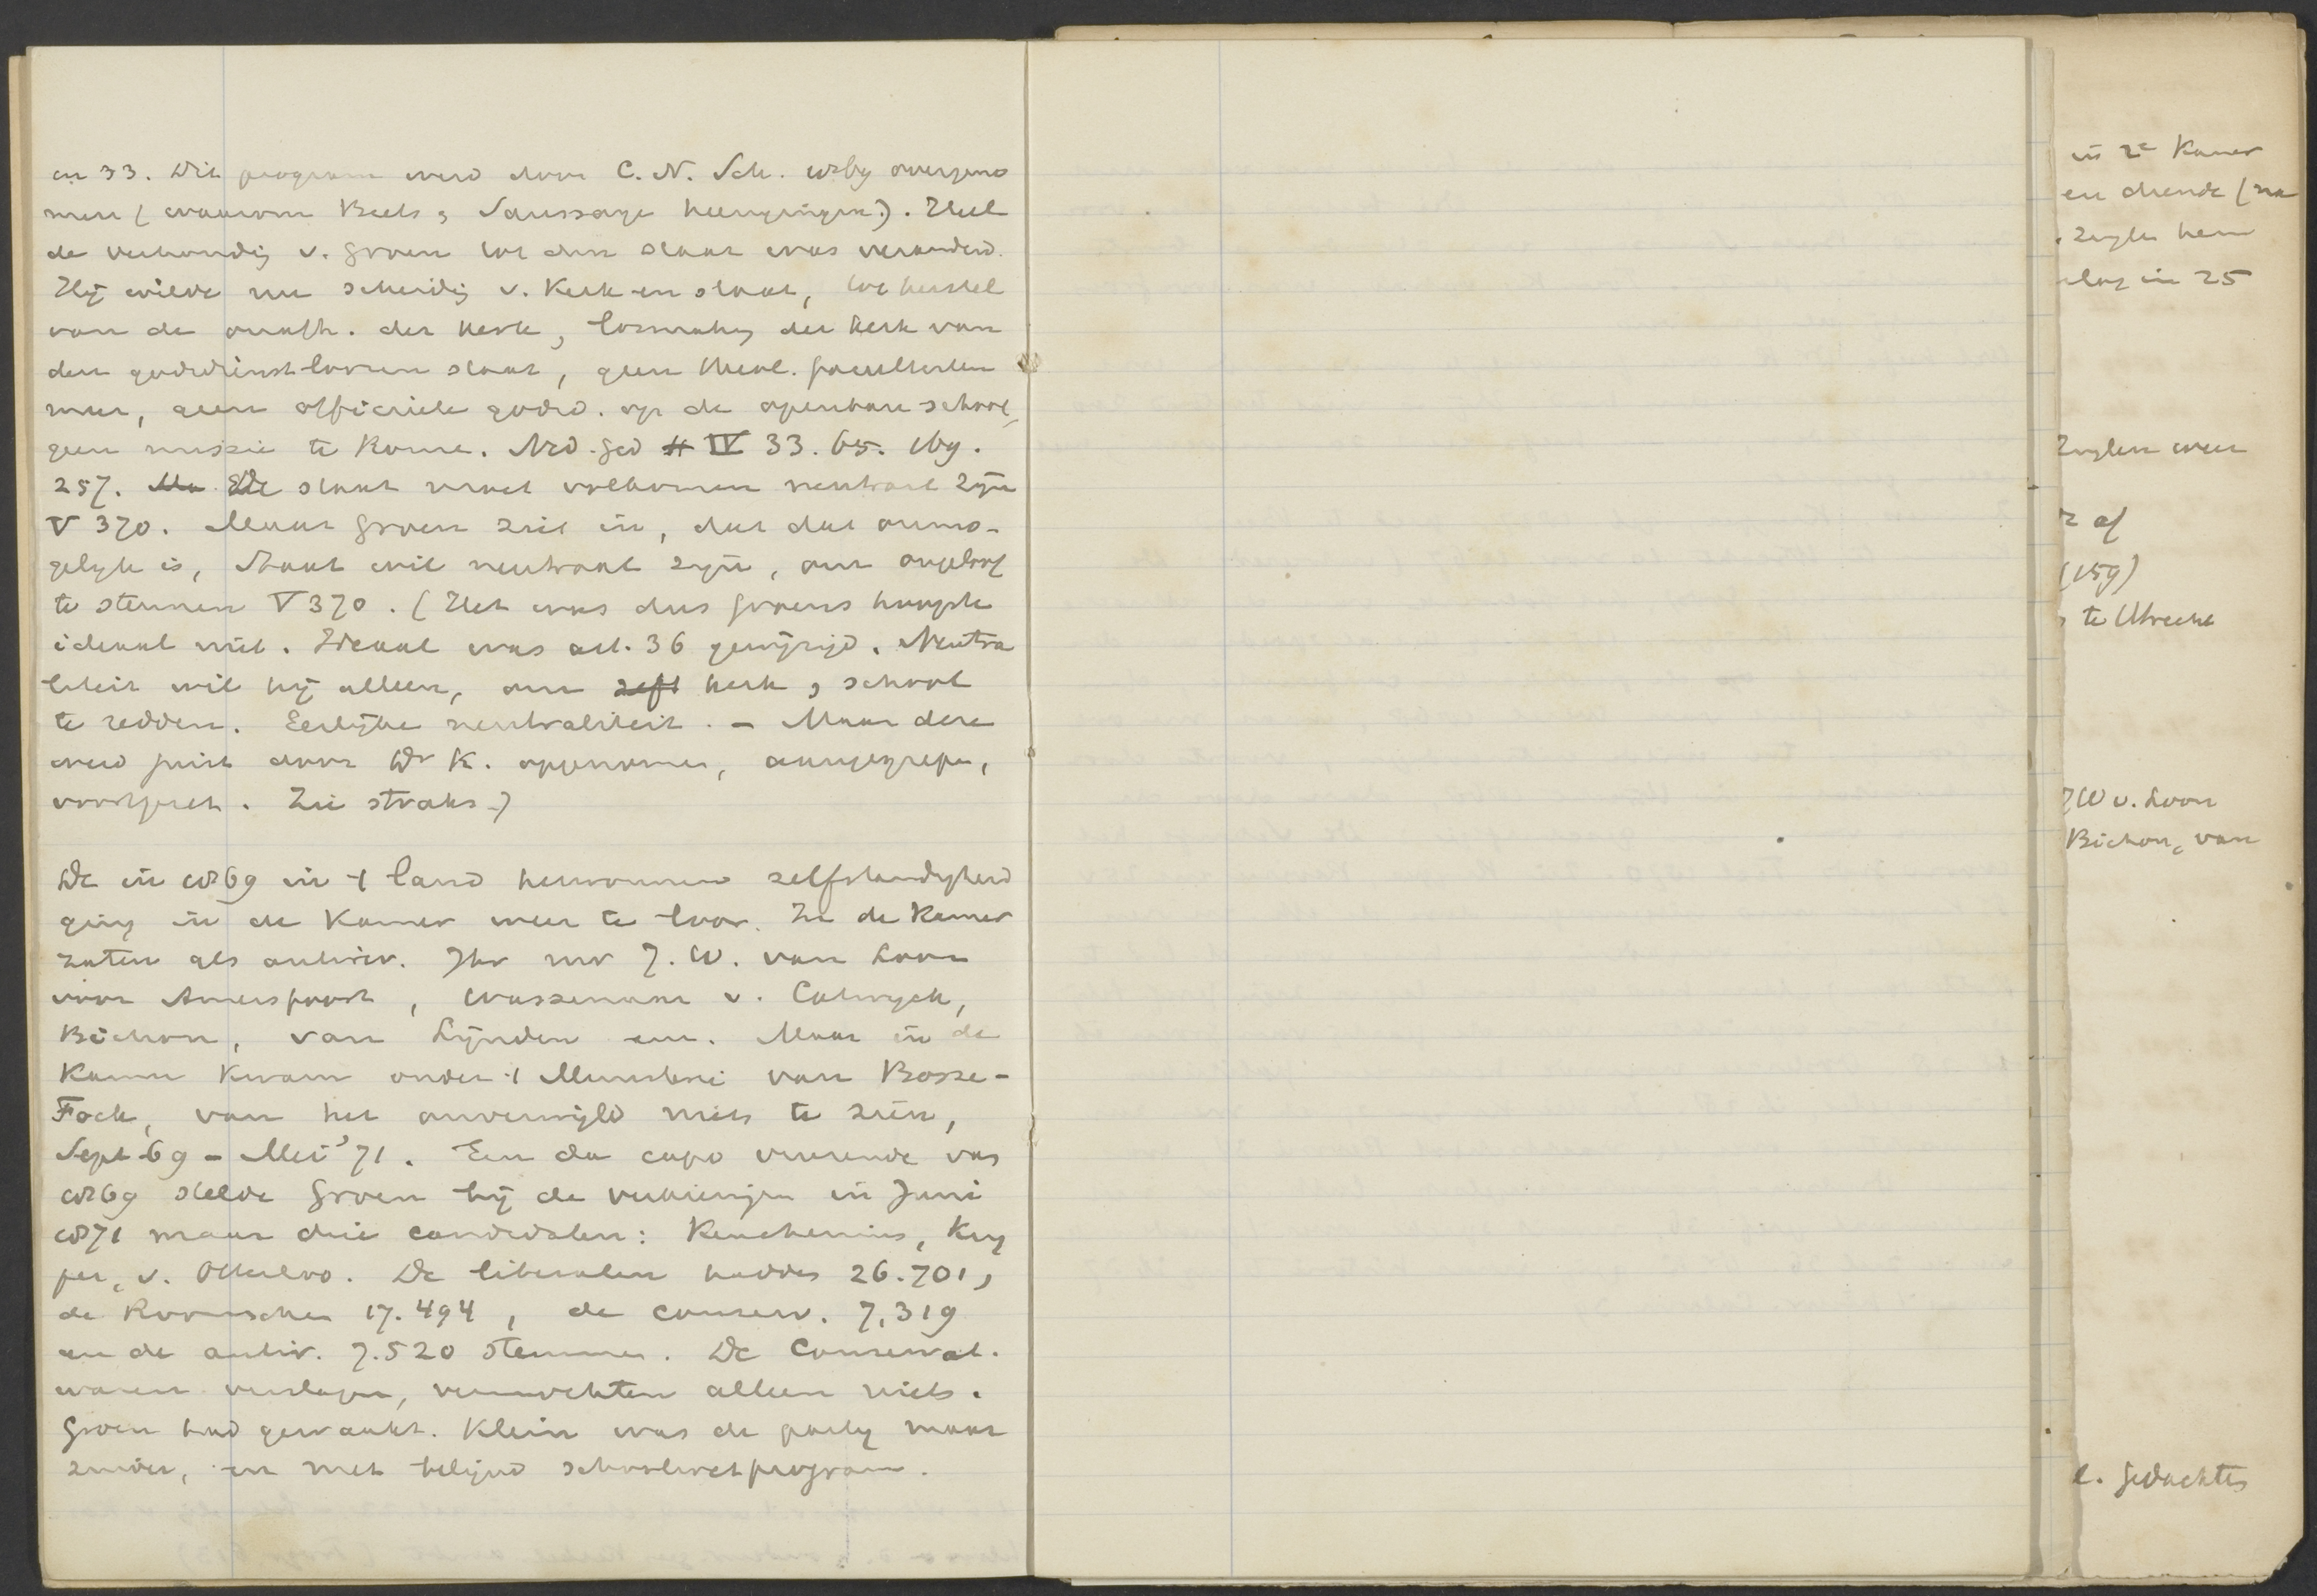 en 33. Dit program werd door C.N. Sch. 1869 overgeno
men (waarom Beets, Saussaye heengingen). Heel
de verhoudig v. Groen tot den staat was veranderd.
Hij wilde nu scheidig v. Kerk en staat, tot herstel
van de onafh. der Kerk, losmakig der Kerk van
den godsdienstloozen staat, geen theol. faculteiten
meer, geen officieele godsd. op de openbare school,
geen missie te Rome. Ned. Ged # IV 33. 65. 169.
257. Ma De staat moet volkomen neutraal zijn
V 370. Maar Groen ziet in, dat dat onmo-
gelijk is, Staat wil neutraal zijn, om ongeloof
te steunen V 370. (Het was dus Groens hoogste
ideaal niet. Ideaal was art. 36 gewijzigd. Neutra
liteit wil hij alleen, om zelf kerk, school
te redden. Eerlijke neutraliteit. - Maar deze
werd juist door Dr K. opgenomen, aangegrepen,
voortgezet. Zie straks.)
De in 1869 in 't land herwonnen zelfstandigheid
ging in de Kamer weer te loor. In de Kamer
zaten als antirev. Jhr mr J. W. van Loon
voor Amersfoort, Wassenaar v. Catwyck,
Bichon, van Lijnden enz. Maar in de
Kamer kwam onder 't Ministerie van Bosse-
Fock, van het onverwijld niets te zien,
Sept 69 - Mei '71. Een da capo vreezende van
1869 stelde Groen bij de verkiezingen in Juni
1871 maar drie candidaten: Keuchenius, Kuy
per, v. Otterloo. De liberalen hadden 26.701,
de Roomschen 17.494, de conserv. 7,319
en de antir. 7.520 stemmen. De Conservat.
waren verslagen, vermochten alleen niets.
Groen had gewaakt. Klein was de partij maar
zuiver, en met belijnd schoolwetprogram.
in 2e Kamer
en chende (na
. Zuylen hem
slag in 25
Zuylen weer
r af
(159)
te Utrecht
JW v. Loon
Bichon, van
e. gedachten